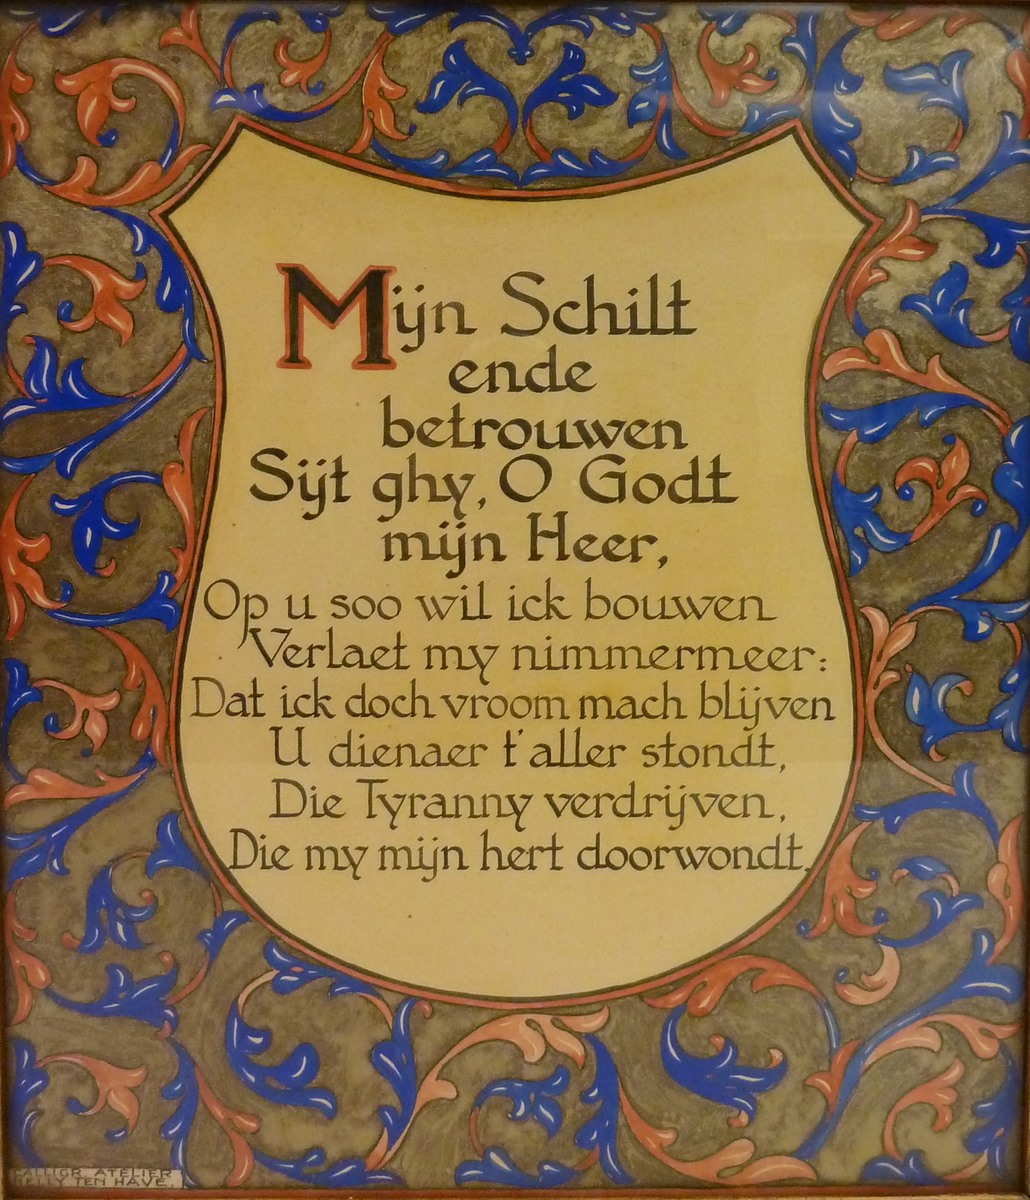 Mijn Schilt
ende
betrouwen
Sijt ghy, O Godt
mijn Heer,
Op u soo wil ick bouwen
Verlaet my nimmermeer:
Dat ick doch vroom mach blijven
U dienaer t'aller stondt,
Die Tyranny verdrijven,
Die my mijn hert doorwondt.
CALLIGR. ATELIER
NELLY TEN HAVE.